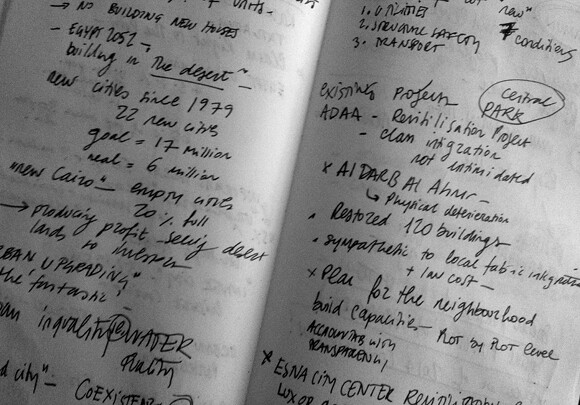 → NO BUILDING NEW HOUSES
- EGYPT 2052 →
building in "The desert" -
new cities since 1979
22 new cities
goal = 17 million
real = 6 million
"new Cairo" - empty cities
20% full
→ producing profit - selling desert
lands to investors
URBAN UPGRADING"
the 'fantastic'
inquality @ WATER
Quality
city" -
COEXISTENCE
new"
1. UTILITIES
2. STRUCTURE SAFETY
conditions
3. TRANSPORT
existing Projects
Central
PARK
ADAA - Revitilisation Project
- class integration
not intimidated
x Al DARB Al Ahmr -
↳ Physical deterioration
Restored 120 buildings
sympathetic to local fabric integration
+ low cost -
x Plan for the neighbourhood
build capacities - Plot by Plot level
ACCOUNTS WITH
TRANSPARENCY
x ESNA CITY CENTER
LUXOR